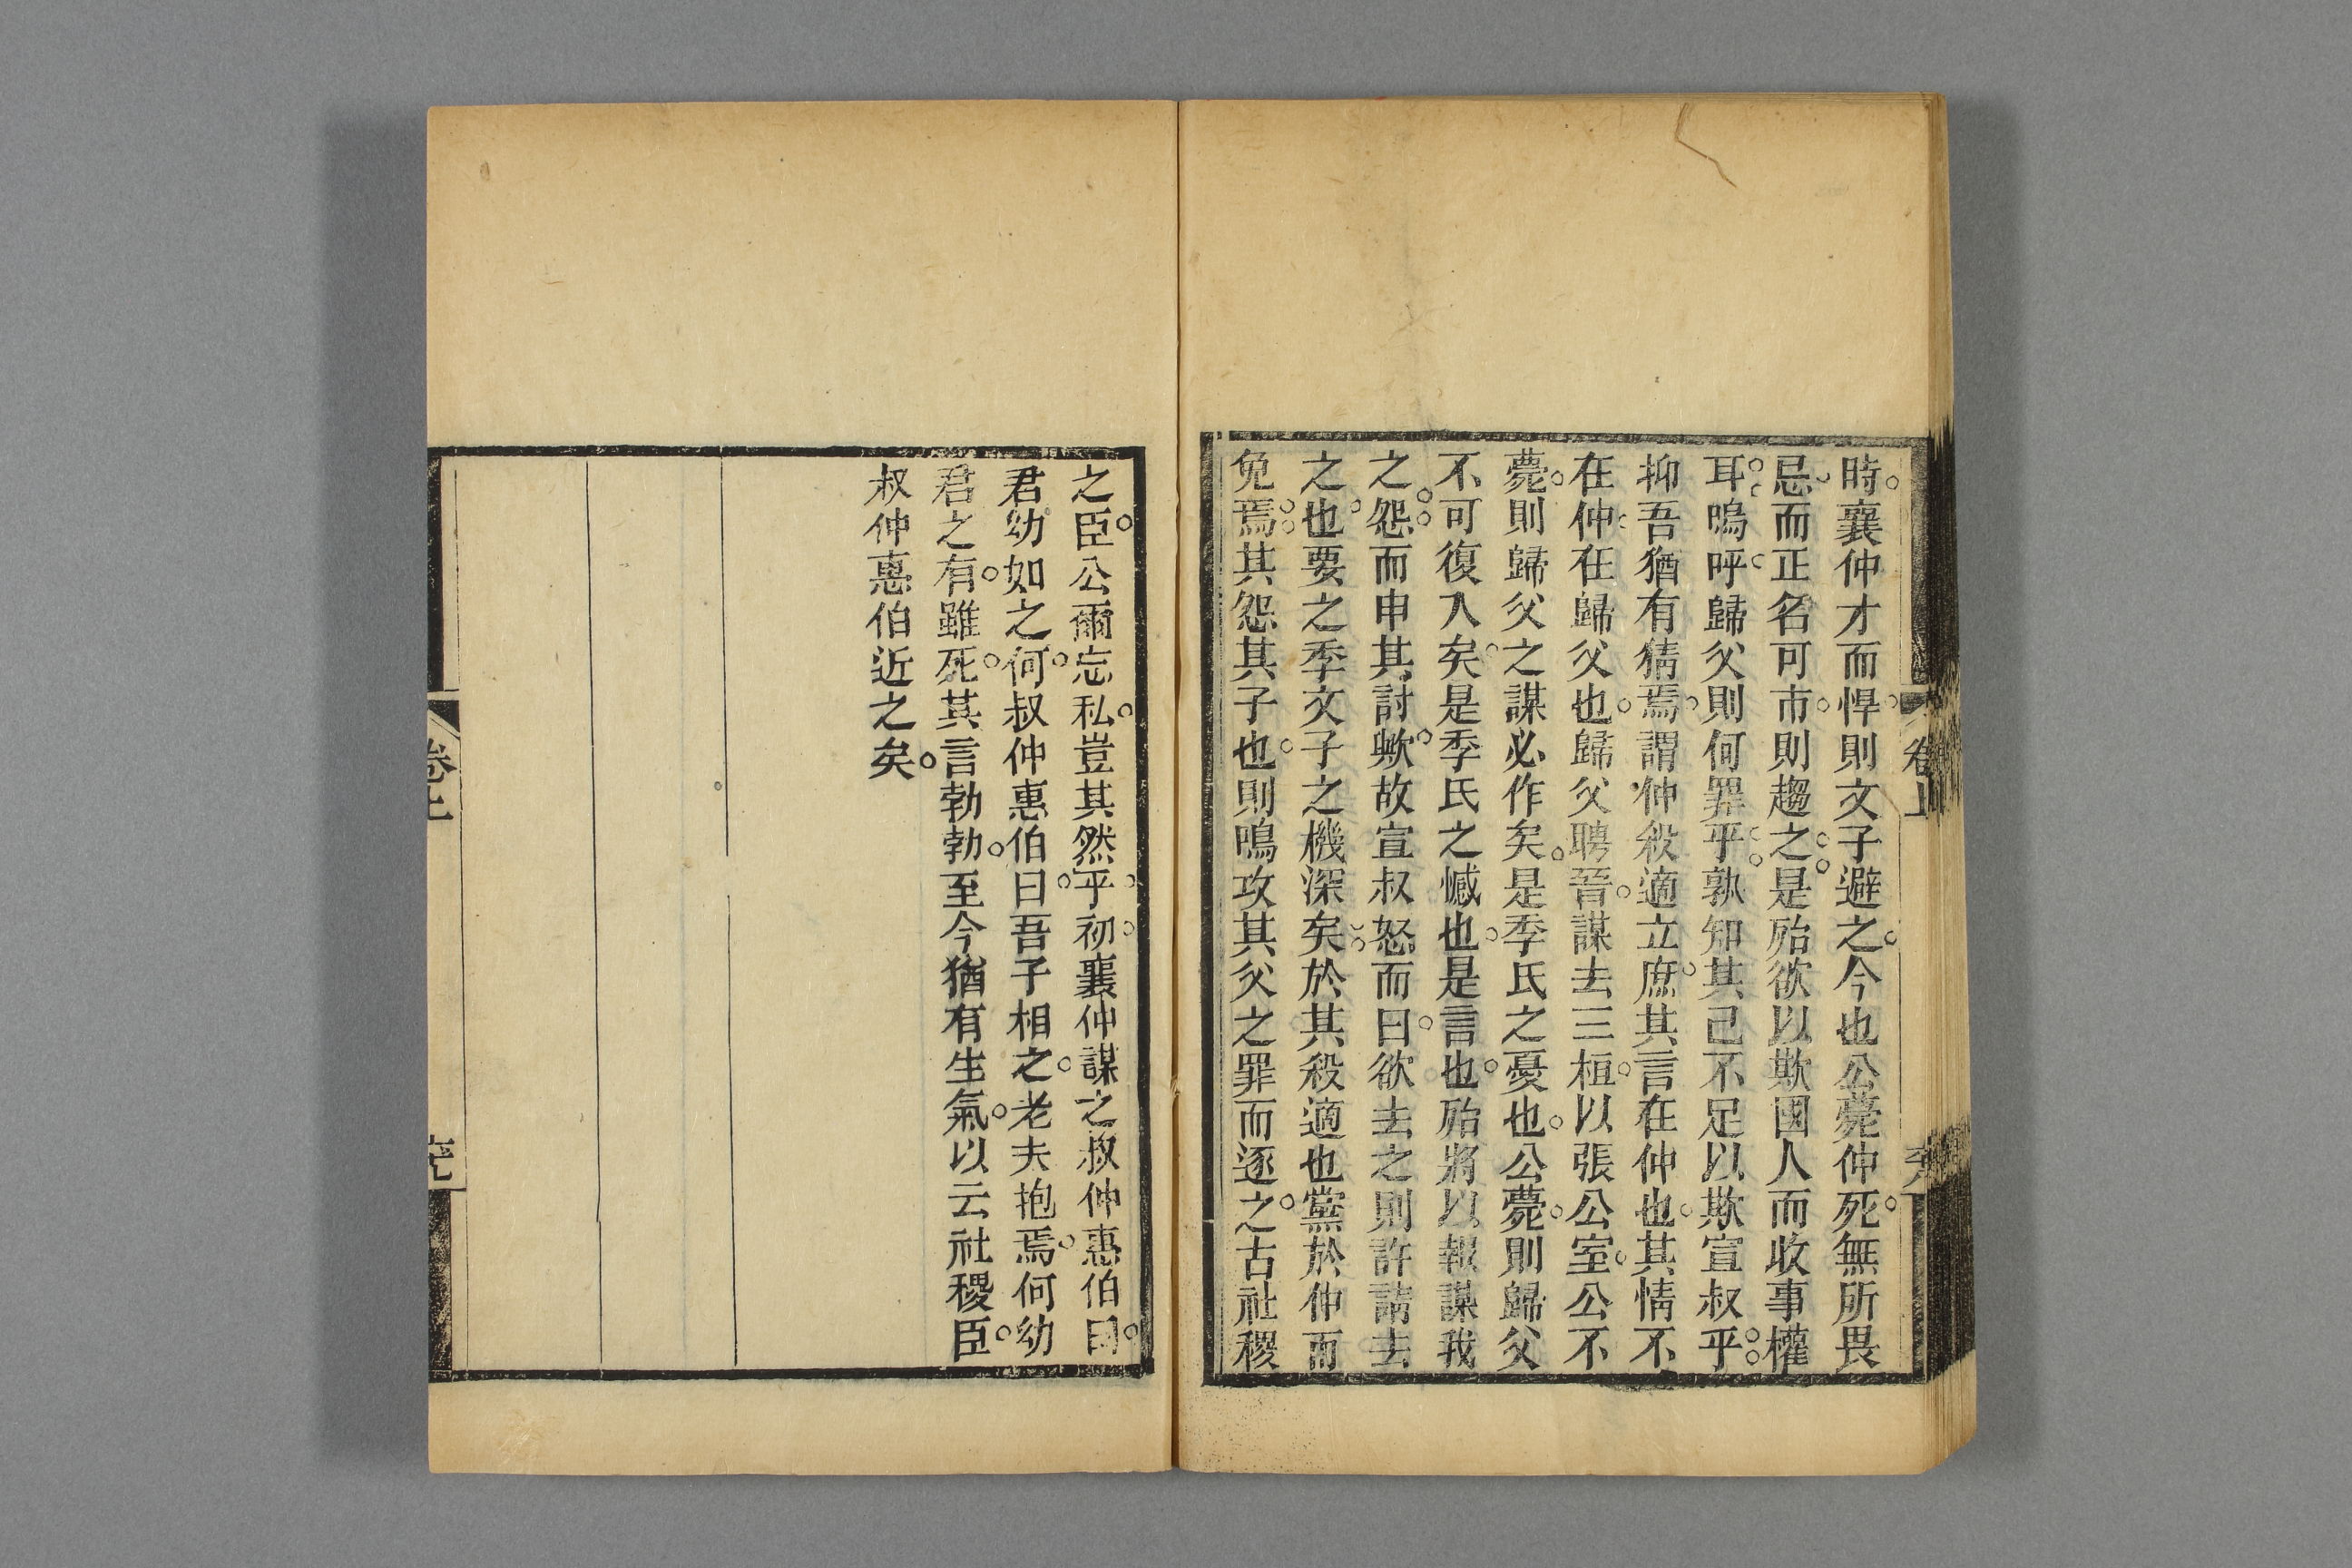 時襄仲才而悍則文子避之今也公薨仲死無所畏
忌而正名可市則趨之是殆欲以欺國人而收事權
耳嗚呼歸父則何罪乎孰知其己不足以欺宣叔乎
抑吾猶有猜焉謂仲殺適立庶其言在仲也其情不
在仲在歸父也歸父聘晉謀去三桓以張公室公不
薨則歸父之謀必作矣是季氏之憂也公薨則歸父
不可復入矣是季氏之憾也是言也殆將以報謀我
之怨而申其討歟故宣叔怒而曰欲去之則許請去
之也要之季文子之機深矣於其殺適也黨於仲而
免焉其怨其子也則鳴攻其父之罪而逐之古社稷
卷上
之臣公爾忘私豈其然乎初襄仲謀之叔仲惠伯曰
君幼如之何叔仲惠伯曰吾子相之老夫抱焉何幼
君之有雖死其言勃勃至今猶有生氣以云社稷臣
叔仲惠伯近之矣
卷上